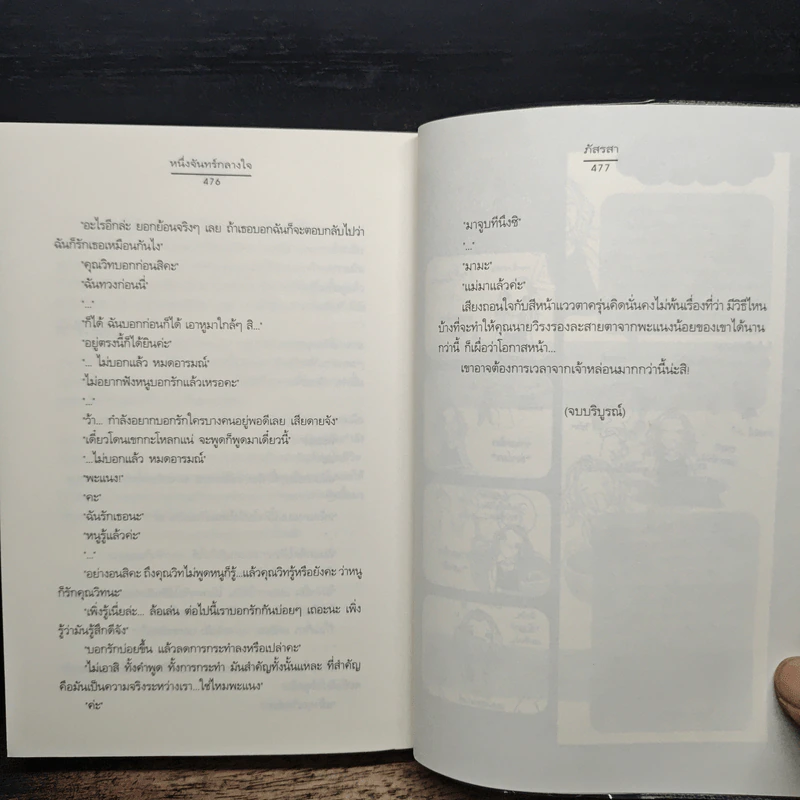 หนึ่งจันทร์กลางใจ
476
"อะไรอีกล่ะ ยอกย้อนจริงๆ เลย ถ้าเธอบอกฉันก็จะตอบกลับไปว่า
ฉันก็รักเธอเหมือนกันไง"
"คุณวิทบอกก่อนสิคะ"
"ฉันทวงก่อนนี่"
"..."
"ก็ได้ ฉันบอกก่อนก็ได้ เอาหูมาใกล้ๆ สิ..."
"อยู่ตรงนี้ก็ได้ยินค่ะ"
"... ไม่บอกแล้ว หมดอารมณ์"
"ไม่อยากฟังหนูบอกรักแล้วเหรอคะ"
"..."
"ว้า... กำลังอยากบอกรักใครบางคนอยู่พอดีเลย เสียดายจัง"
"เดี๋ยวโดนเขกกะโหลกแน่ จะพูดก็พูดมาเดี๋ยวนี้"
"...ไม่บอกแล้ว หมดอารมณ์"
"พะแนง!"
"คะ"
"ฉันรักเธอนะ"
"หนูรู้แล้วค่ะ"
"..."
"อย่างอนสิคะ ถึงคุณวิทไม่พูดหนูก็รู้...แล้วคุณวิทรู้หรือยังคะ ว่าหนู
ก็รักคุณวิทนะ"
"เพิ่งรู้เนี่ยล่ะ... ล้อเล่น ต่อไปนี้เราบอกรักกันบ่อยๆ เถอะนะ เพิ่ง
รู้ว่ามันรู้สึกดีจัง"
"บอกรักบ่อยขึ้น แล้วลดการกระทำลงหรือเปล่าคะ"
"ไม่เอาสิ ทั้งคำพูด ทั้งการกระทำ มันสำคัญทั้งนั้นแหละ ที่สำคัญ
คือมันเป็นความจริงระหว่างเรา...ใช่ไหมพะแนง"
"ค่ะ"
ภัสรสา
477
"มาจูบทีนึงซิ"
"..."
"มามะ"
"แม่มาแล้วค่ะ"
เสียงถอนใจกับสีหน้าแววตาครุ่นคิดนั่นคงไม่พ้นเรื่องที่ว่า มีวิธีไหน
บ้างที่จะทำให้คุณนายวิรงรองละสายตาจากพะแนงน้อยของเขาได้นาน
กว่านี้ ก็เผื่อว่าโอกาสหน้า...
เขาอาจต้องการเวลาจากเจ้าหล่อนมากกว่านี้น่ะสิ!
(จบบริบูรณ์)